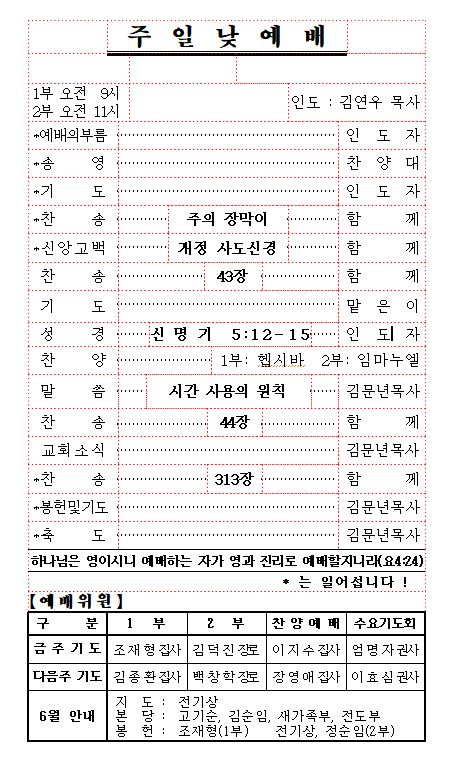 주 일 낮 예 배
1부 오전 9시
2부 오전 11시
인도 : 김연우 목사
*예배의부름 인 도 자
*송 영 찬 양 대
*기 도 인 도 자
*찬 송 주의 장막이 함 께
*신앙고백 개정 사도신경 함 께
찬 송 43장 함 께
기 도 맡 은 이
성 경 신 명 기 5:12-15 인 도 자
찬 양 1부: 헵시바 2부: 임마누엘
말 씀 시간 사용의 원칙 김문년목사
찬 송 44장 함 께
교회소식 김문년목사
*찬 송 313장 함 께
*봉헌및기도 김문년목사
*축 도 김문년목사
하나님은 영이시니 예배하는 자가 영과 진리로 예배할지니라(요4:24)
* 는 일어섭니다 !
【예배위원】
구 분 1 부 2 부 찬양예배 수요기도회
금주기도 조재형집사 김덕진장로 이지수집사 엄명자권사
다음주 기도 김종환집사 백창학장로 장영애집사 이효심권사
6월 안내
지 도 : 전기상
본 당 : 고기순, 김순임, 새가족부, 전도부
봉 헌 : 조재형(1부) 전기상, 정순임(2부)